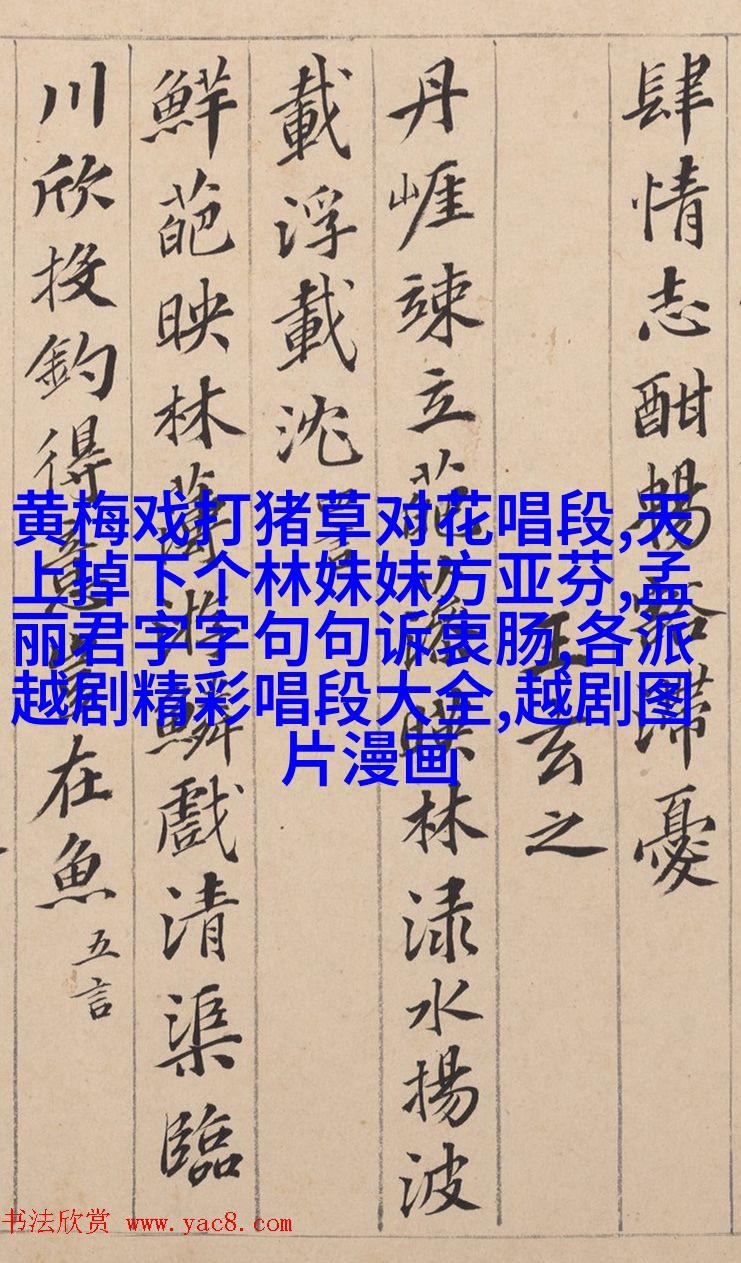 肆情志酣暢豁滯憂
王玄之
丹崕竦立葩藻暎林渌水揚波
載浮載沈
鮮葩映林薄游鱗戲清渠臨
川欣投釣得意豈在魚 五言
黄梅戏打猪草对花唱段,天
上掉下个林妹妹方亚芬,孟
丽君字字句句诉衷肠,各派
越剧精彩唱段大全,越剧图
片漫画
书法欣赏 www.yac8.com